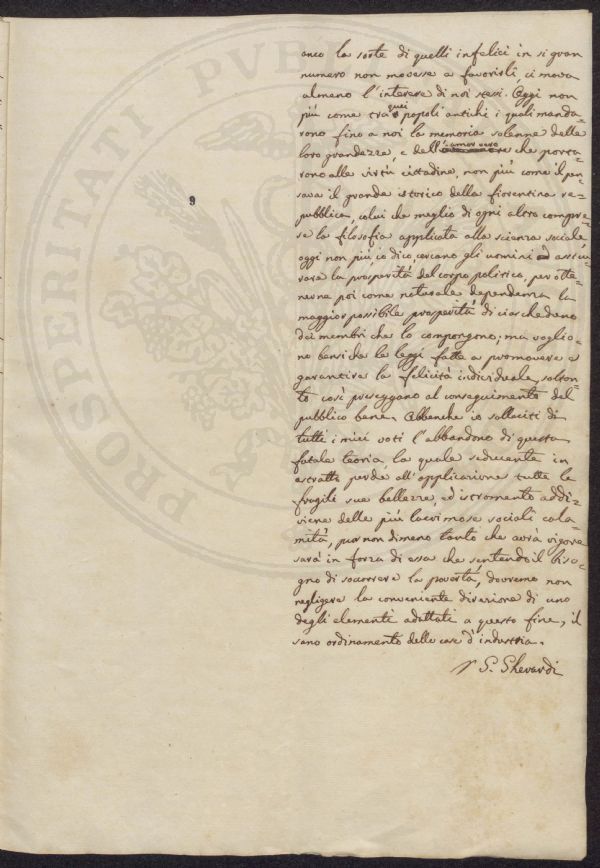 anco la sorte di quelli infelici in si gran
numero non movesse a favorirli, ci mova
almeno l'interesse di noi stessi. Oggi non
più come tra quei popoli antichi i quali manda-
rono fino a noi la memoria solenne della
loro grandezza, e dell'amor vero che porta-
rono alle virtù cittadine, non più come il pen-
sava il grande istorico della fiorentina re-
pubblica, colui che meglio di ogni altro compre-
se la filosofia applicata alla scienza sociale,
oggi non più, io dico, cercano gli uomini ad assicu-
rare la prosperità del corpo politico, per otte-
nerne poi come naturale dependenza la
maggior possibile prosperità di ciascheduno
dei membri che lo compongono; ma voglio-
no bensì che le leggi fatte a promovere e
garantire la felicità individuale soltan-
to così preseggano al conseguimento del
pubblico bene. Abbenche io solleciti di
tutti i miei voti l'abbandono di questa
fatale teoria, la quale seducente in
astratto perde all'applicazione tutte le
fragili sue bellezze, ed istromento addi-
viene delle più lacrimose sociali cala-
mità, pur non dimeno tanto che avrà vigore
sarà in forza di essa che sentendo il biso-
gno di socorrere la povertà, dovremo non
negligere la conveniente direzione di uno
degli elementi adattati a questo fine, il
sano ordinamento delle case d'industria.
S. Gherardi
9
PROSPERITATI PVBL